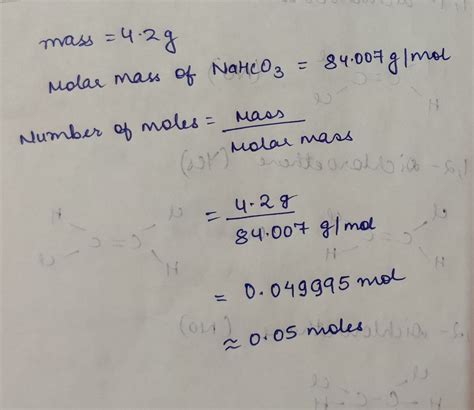 mass = 4.2g
Molar mass of NaHCO3 = 84.007 g/mol
Number of moles = Mass
Molar mass
= 4.2 g
84.007 g/mol
= 0.049995 mol
≈ 0.05 moles